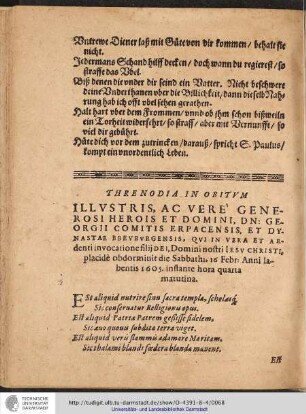 Vntrewe Diener laß mit Güte von dir kommen / behalt sie
nicht.
Jedermans Schand hilff decken / doch wann du regierest / so
straffe das Vbel.
Biß denen die vnder dir seind ein Vatter. Nicht beschwere
deine Vnderthanen vber die Billichkeit / dann dieselb Nah-
rung hab ich offt vbel sehen gerathen.
Halt hart vber dem Frommen / vnnd ob jhm schon bißweiln
ein Torheit widerfehrt / so straff / aber mit Vernunfft / so
viel dir gebührt.
Hüte dich vor dem zutrincken / darauß / spricht S. Paulus /
kompt ein vnordentlich Leben.
THRENODIA IN OBITVM
ILLVSTRIS, AC VERE' GENE-
ROSI HEROIS ET DOMINI, DN: GE-
ORGII COMITIS ERPACENSIS, ET DY-
NASTAE BREVBVRGENSIS, QVI IN VERA ET AR-
denti invocatione filij DEI, Domini nostri IESV CHRISTI,
placidè obdorminit die Sabbathi, 16 Febr: Anni la-
bentis 1605. instante hora quarta
matutina.
Est aliquid nutrire sinu sacra templa, scholasq́;
Sic conservatur Relligionis opus.
Est aliquid Patria Patrem gessisse fidelem,
Sic auo quouis subdita terra viget.
Est aliquid veri flammis adamare Maritam,
Sic thalami blandi fœdera blanda manent.
Est
http://tudigit.ulb.tu-darmstadt.de/show/O-4391-8-4/0068
Universitäts- und Landesbibliothek Darmstadt